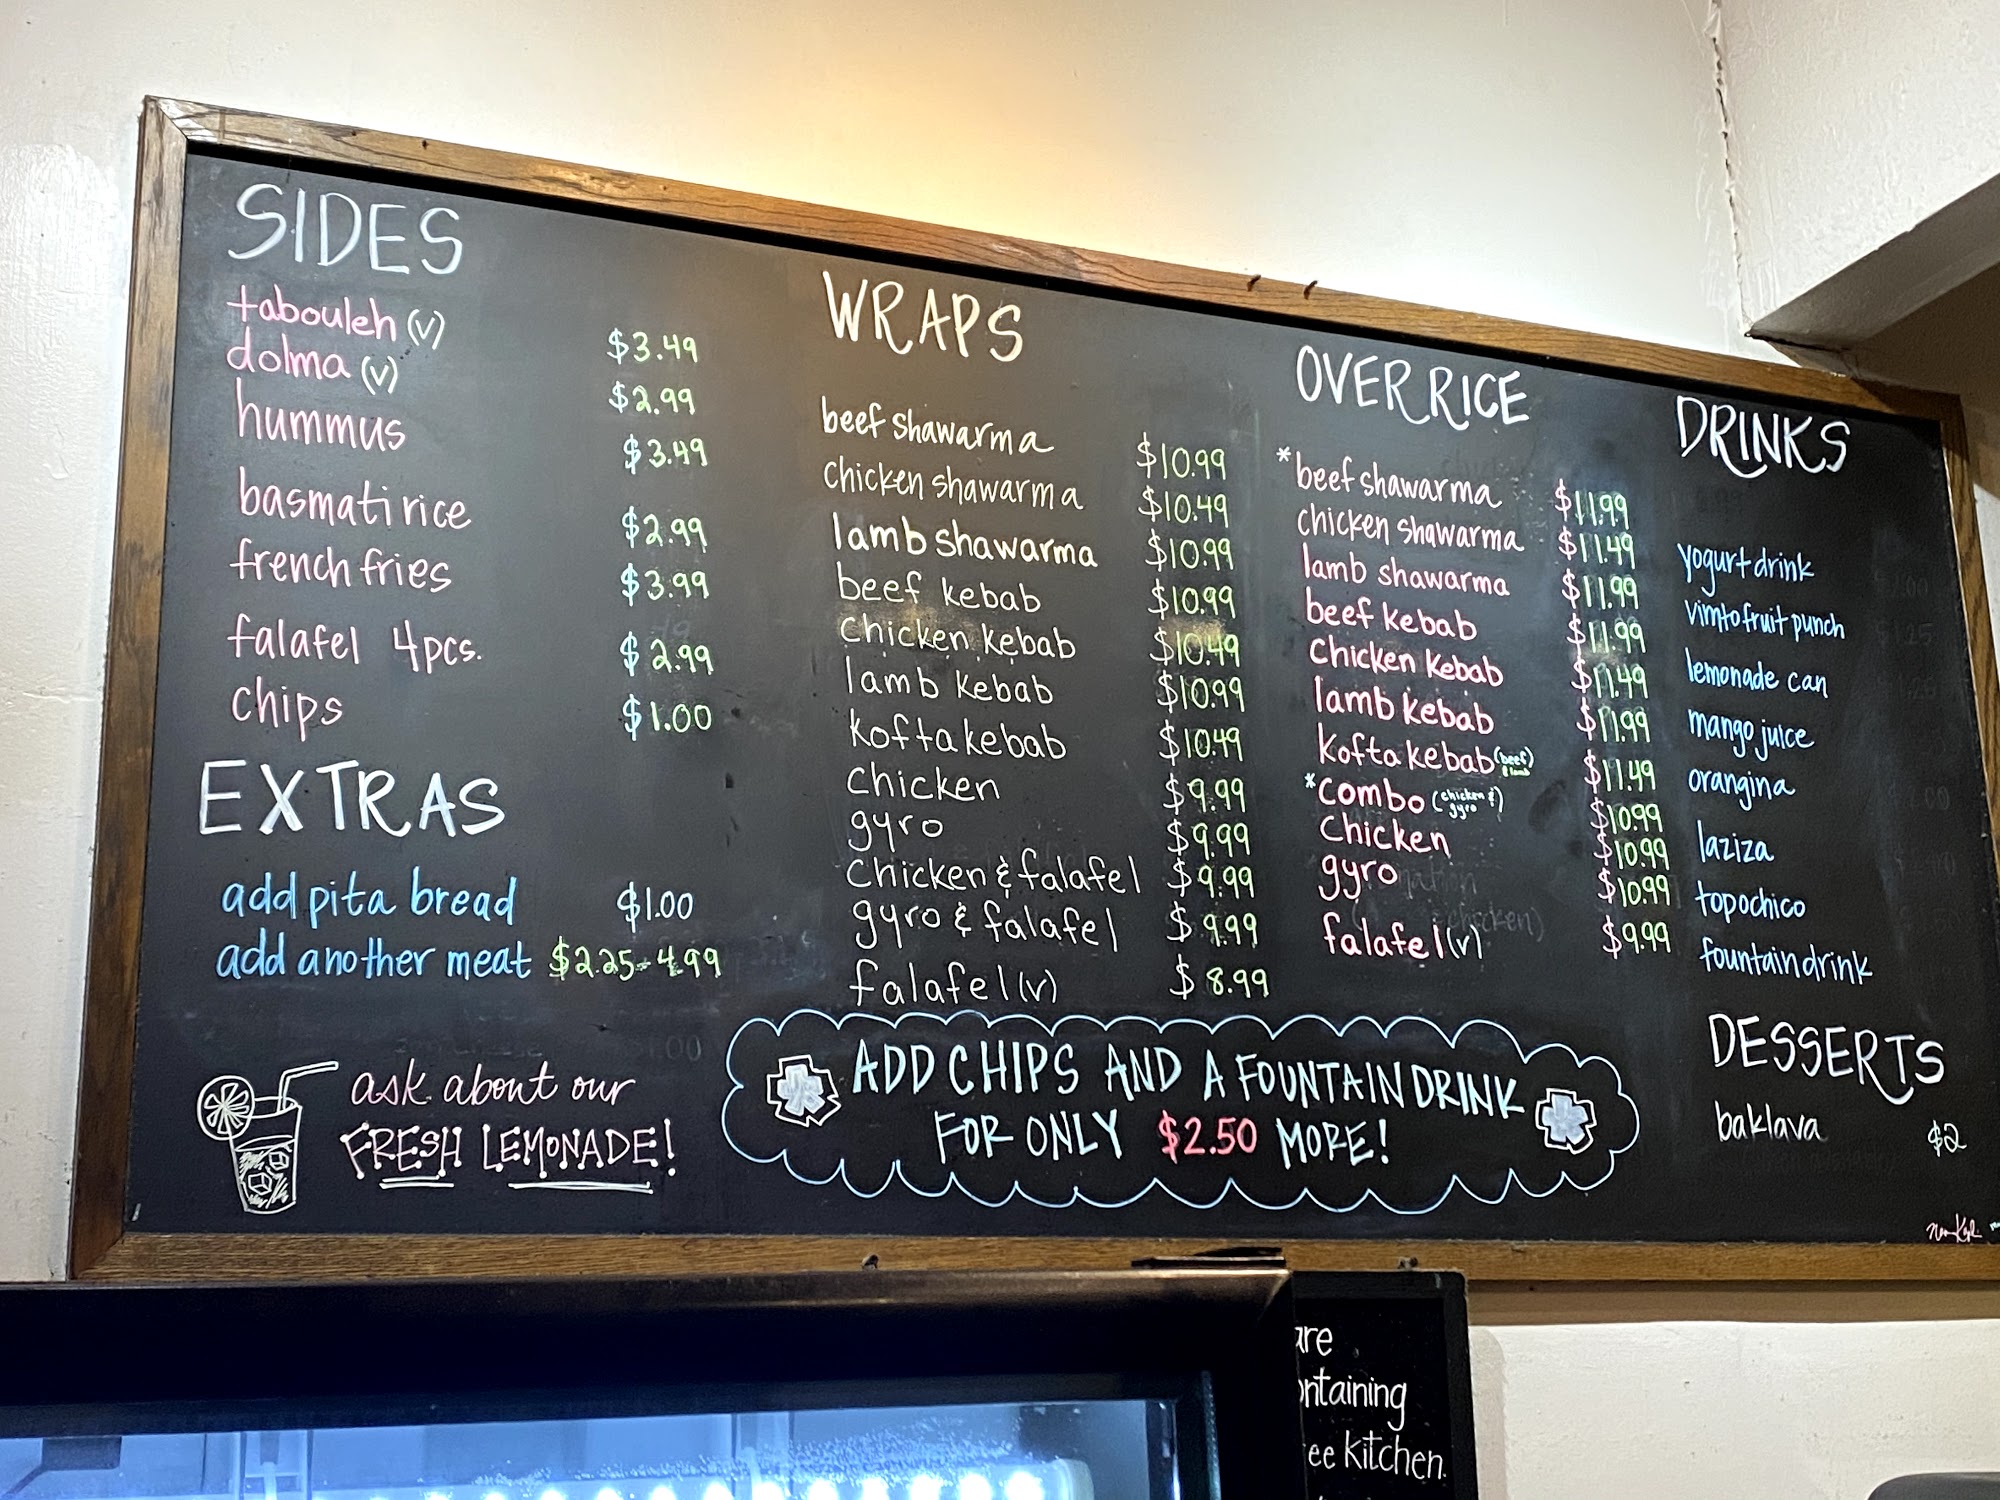 SIDES
tabouleh (v) $3.49
dolma (v) $2.99
hummus $3.49
basmati rice $2.99
french fries $3.99
falafel 4pcs. $2.99
chips $1.00
EXTRAS
add pita bread $1.00
add another meat $2.25-4.99
ask about our
FRESH LEMONADE!
WRAPS
beef shawarma $10.99
chicken shawarma $10.49
lamb shawarma $10.99
beef kebab $10.99
chicken kebab $10.49
lamb kebab $10.99
kofta kebab $10.49
chicken $9.99
gyro $9.99
chicken & falafel $9.99
gyro & falafel $9.99
falafel (v) $8.99
OVER RICE
*beef shawarma $11.99
chicken shawarma $11.49
lamb shawarma $11.99
beef kebab $11.99
chicken kebab $11.49
lamb kebab $11.99
kofta kebab (beef & lamb) $11.49
*combo (chicken & gyro) $10.99
chicken $10.99
gyro $10.99
falafel (v) $9.99
ADD CHIPS AND A FOUNTAIN DRINK
FOR ONLY $2.50 MORE!
DRINKS
yogurt drink
vimto fruit punch
lemonade can
mango juice
orangina
laziza
topochico
fountain drink
DESSERTS
baklava $2
are
ontaining
ee kitchen.